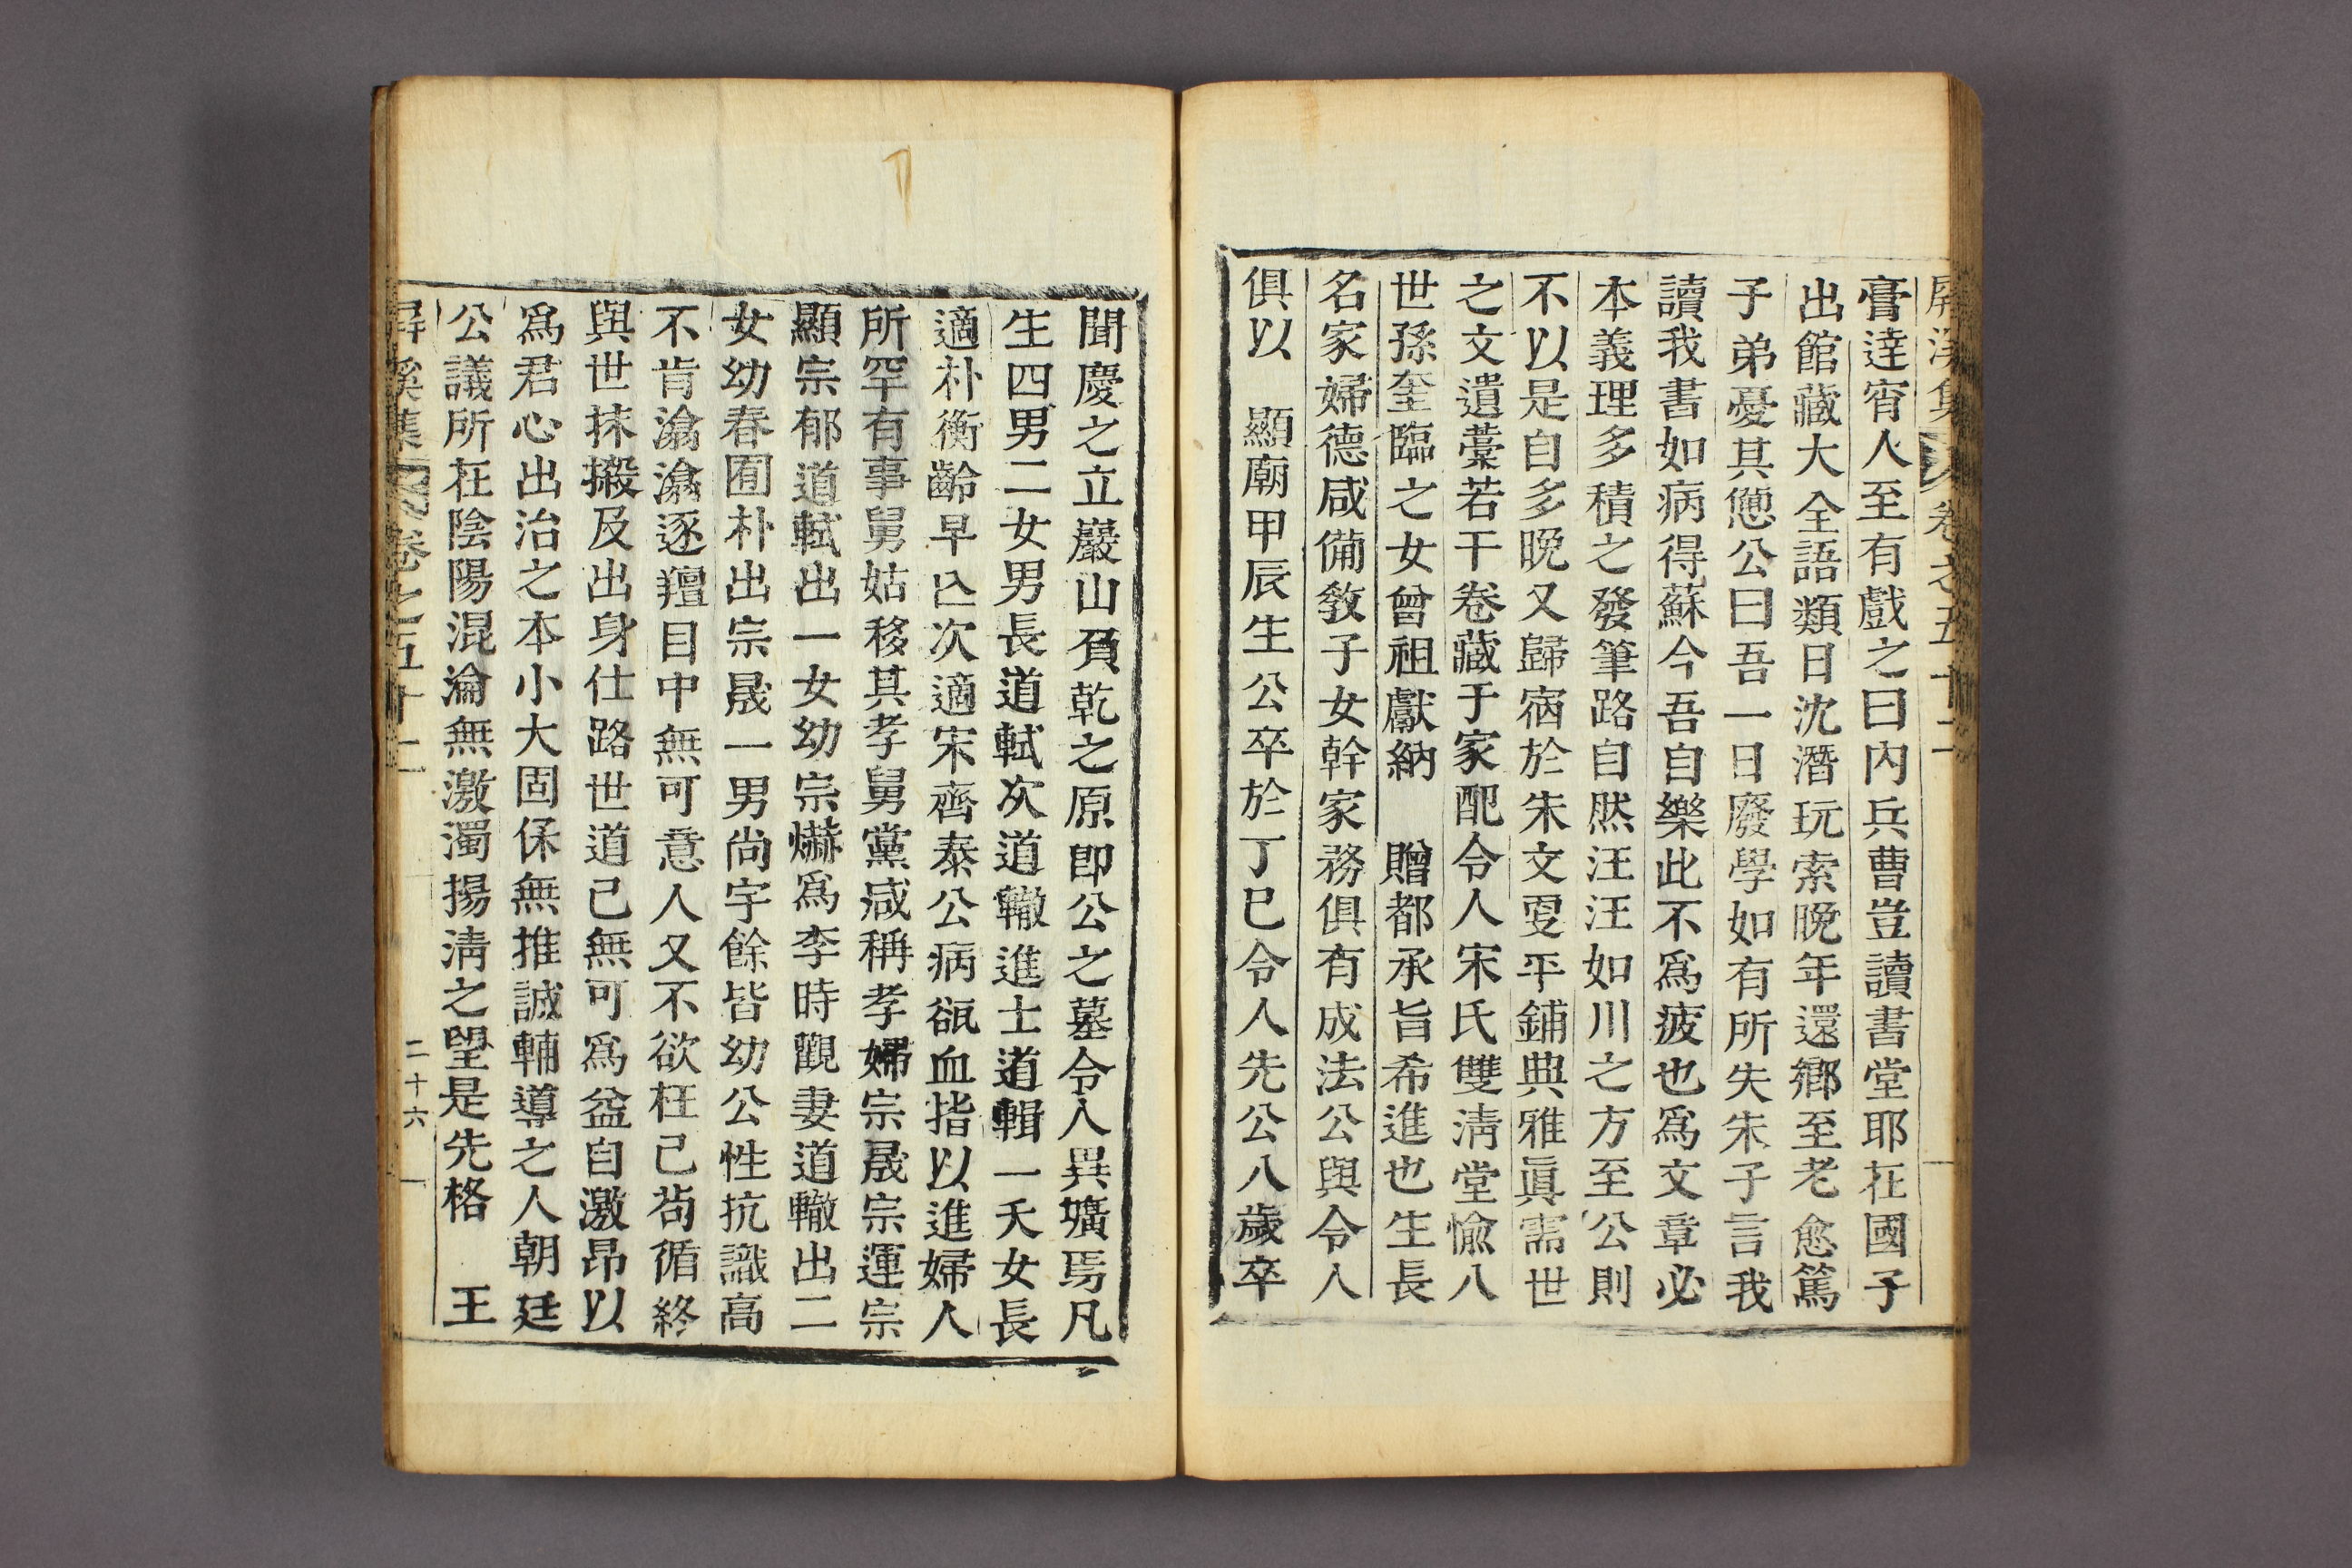 屏溪集 卷之五十二
膏達宵人至有戲之曰內兵曹豈讀書堂耶在國子
出館藏大全語類日沈潛玩索晩年還鄕至老愈篤
子弟憂其憊公曰吾一日廢學如有所失朱子言我
讀我書如病得蘇今吾自樂此不爲疲也爲文章必
本義理多積之發筆路自然汪汪如川之方至公則
不以是自多晩又歸宿於朱文更平鋪典雅眞需世
之文遺藁若干卷藏于家配令人宋氏雙淸堂愉八
世孫奎臨之女曾祖獻納 贈都承旨希進也生長
名家婦德咸備敎子女幹家務俱有成法公與令人
俱以 顯廟甲辰生公卒於丁巳令人先公八歲卒
聞慶之立巖山負乾之原卽公之墓令人異壙焉凡
生四男二女男長道軾次道轍進士道輯一夭女長
適朴衡齡早亡次適宋齊泰公病㼛血指以進婦人
所罕有事舅姑移其孝舅黨咸稱孝婦宗晟宗運宗
顯宗郁道軾出一女幼宗爀爲李時觀妻道轍出二
女幼春囿朴出宗晟一男尙宇餘皆幼公性抗識高
不肯滃滃逐羶目中無可意人又不欲枉己苟循終
與世抹摋及出身仕路世道已無可爲益自激昂以
爲君心出治之本小大固係無推誠輔導之人朝廷
公議所在陰陽混淪無激濁揚淸之望是先格 王
屏溪集 卷之五十二 二十六